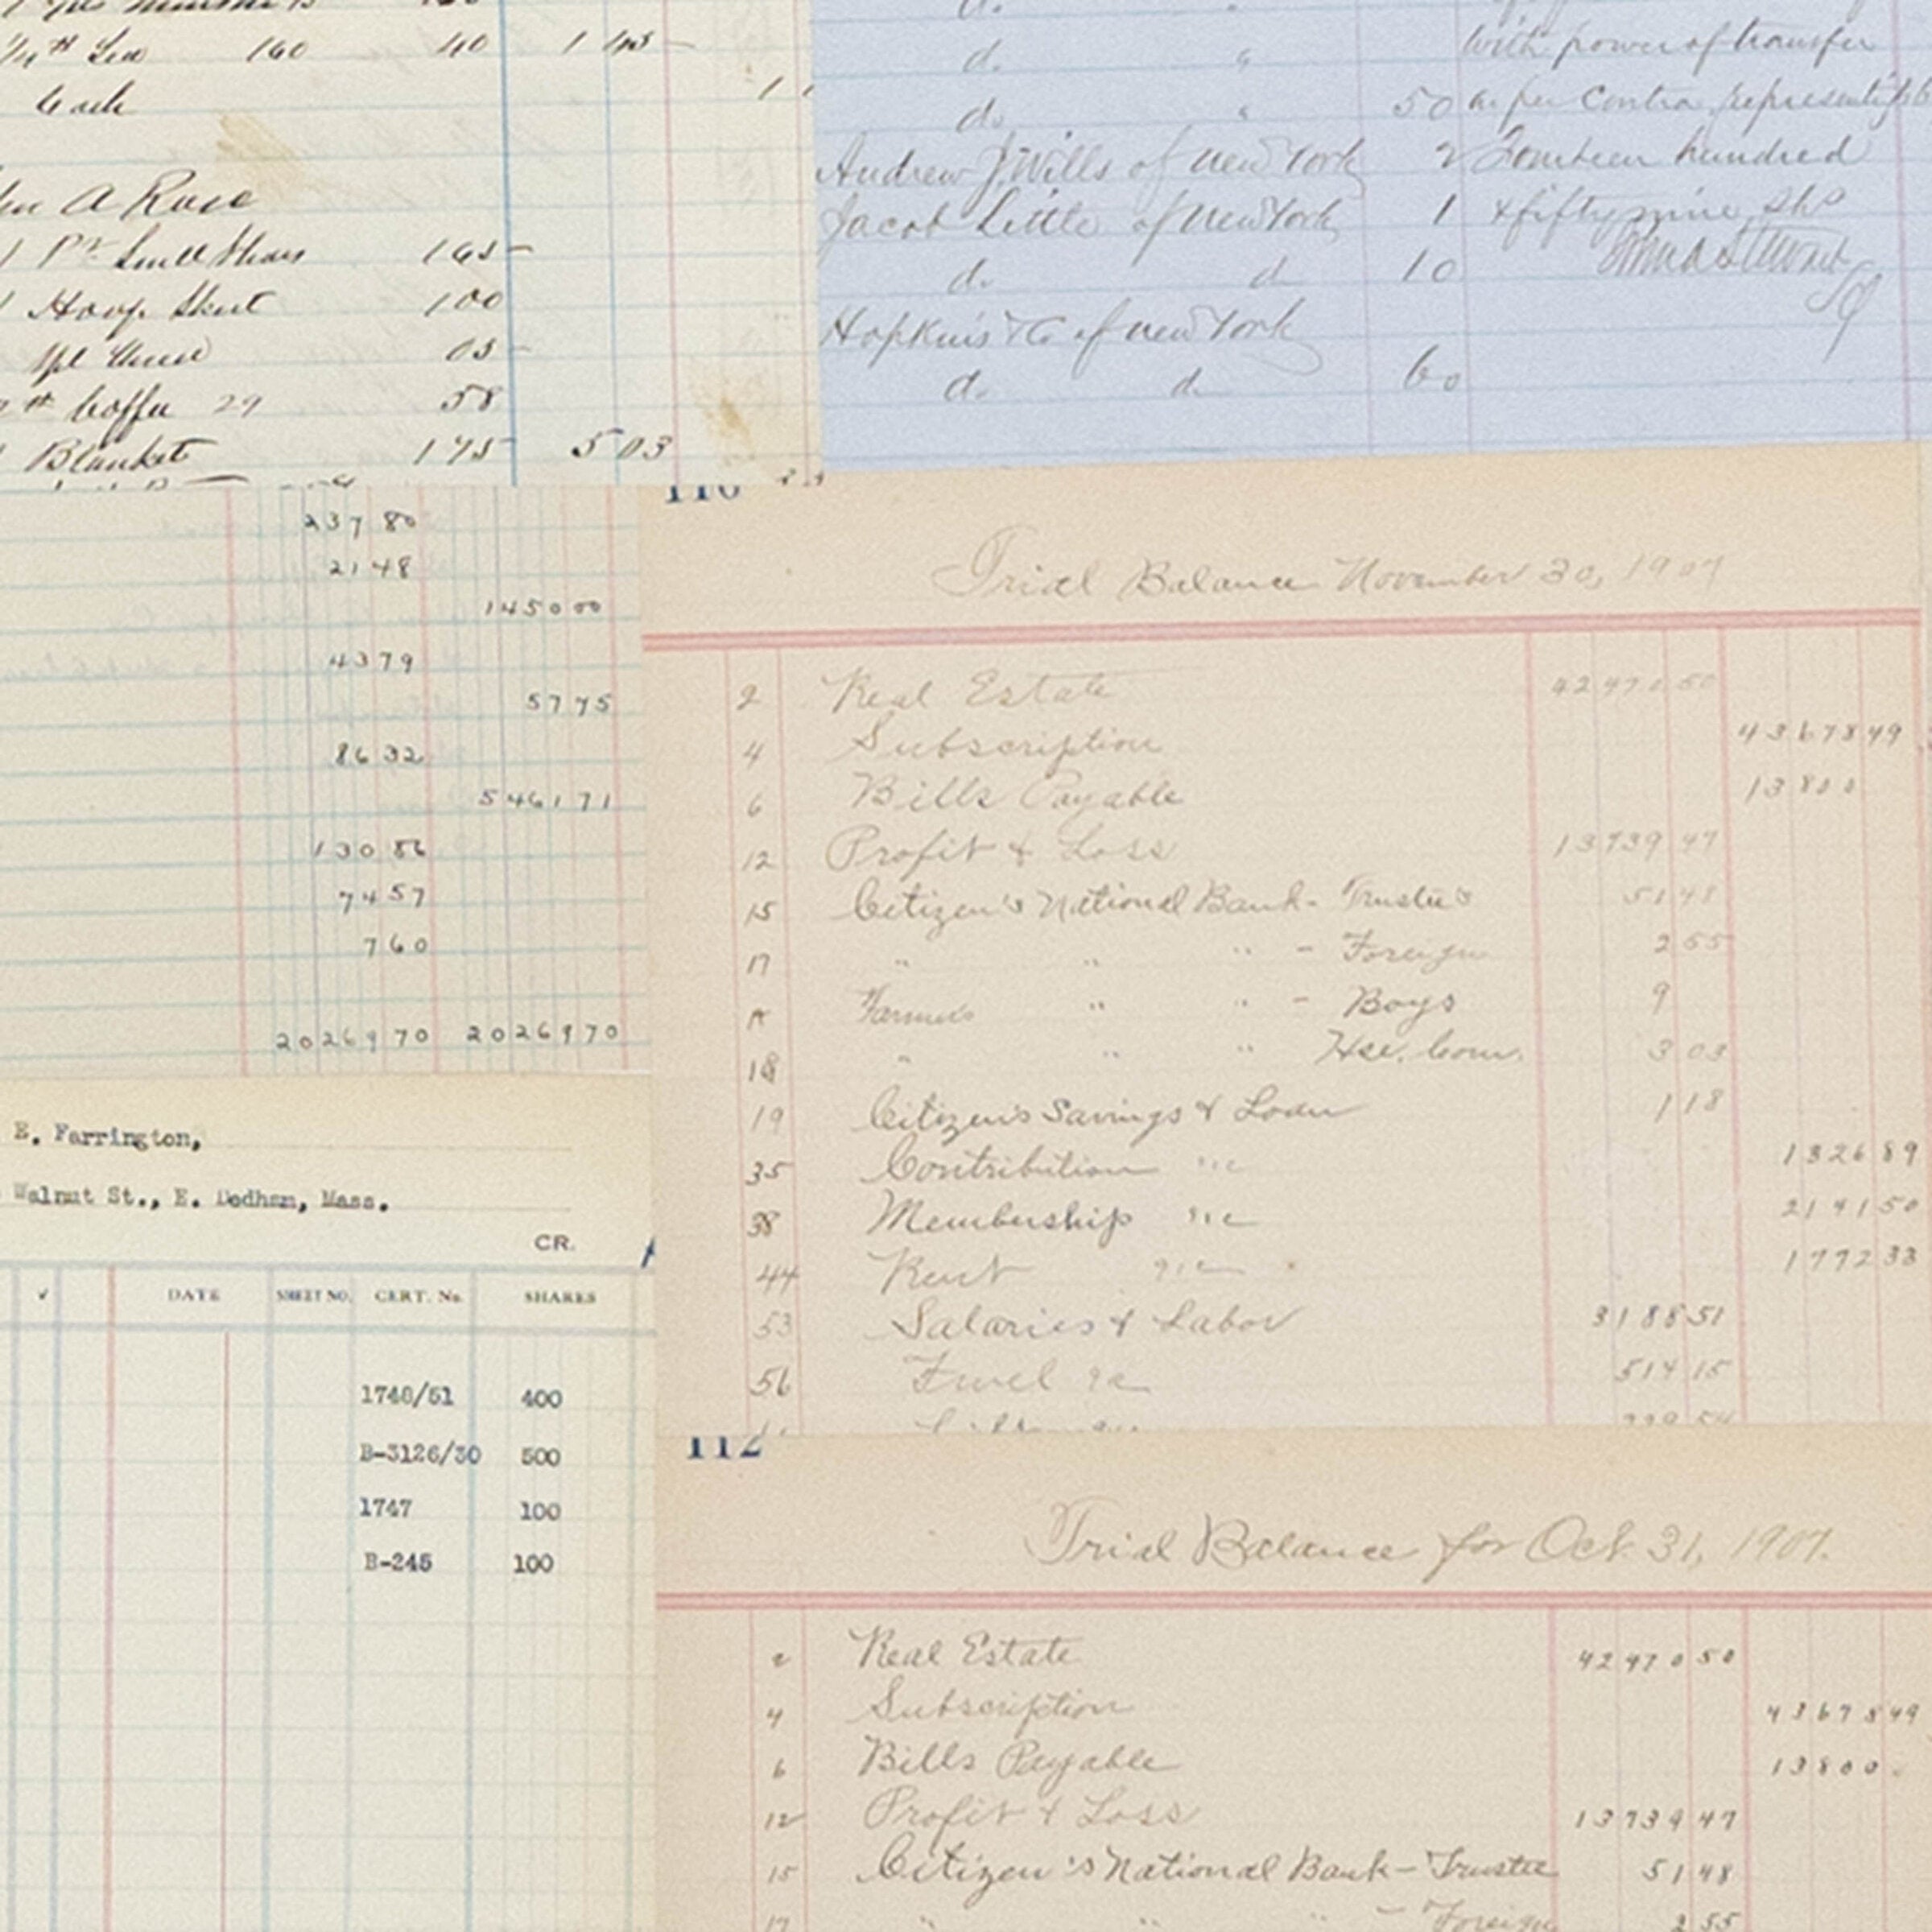 Tea 160 40
Cash
A Rose
1 Pr Small Shears 165
1 Hoop Skirt 100
05
# Coffee 29 58
1 Blanket 175 503
d. "
d. "
d. " 50
Andrew J. Wills of New York 2
Jacob Little of New York 1
d. d 10
Hopkins & Co of New York
d. d 60
with power of transfer
as per Contra, representing
Fourteen hundred
& fifty nine Shs
237 80
21 48
1450 00
43 79
57 75
86 32
5461 71
130 86
74 57
7 60
20269 70 20269 70
E. Farrington,
Walnut St., E. Dedham, Mass.
CR.
✓ DATE SHEET NO. CERT. No. SHARES
1748/51 400
B-3126/30 500
1747 100
B-245 100
110
Trial Balance November 30, 1907
2 Real Estate 42970 50
4 Subscription 43678 49
6 Bills Payable 13800
12 Profit & Loss 13739 47
15 Citizen's National Bank - Trustee's 51 48
17 " " " - Foreign 2 55
Farmers " " - Boys 9
18 " " " Hse. Com. 3 03
19 Citizen's Savings & Loan 1 18
35 Contribution a/c 1326 89
38 Membership a/c 2141 50
44 Rent a/c 1772 33
53 Salaries & Labor 3188 51
56 Fuel a/c 514 15
112
Trial Balance for Oct. 31, 1907.
2 Real Estate 42970 50
4 Subscription 43678 49
6 Bills Payable 13800
12 Profit & Loss 13739 47
15 Citizen's National Bank - Trustee 51 48
17 " " " - Foreign 2 55